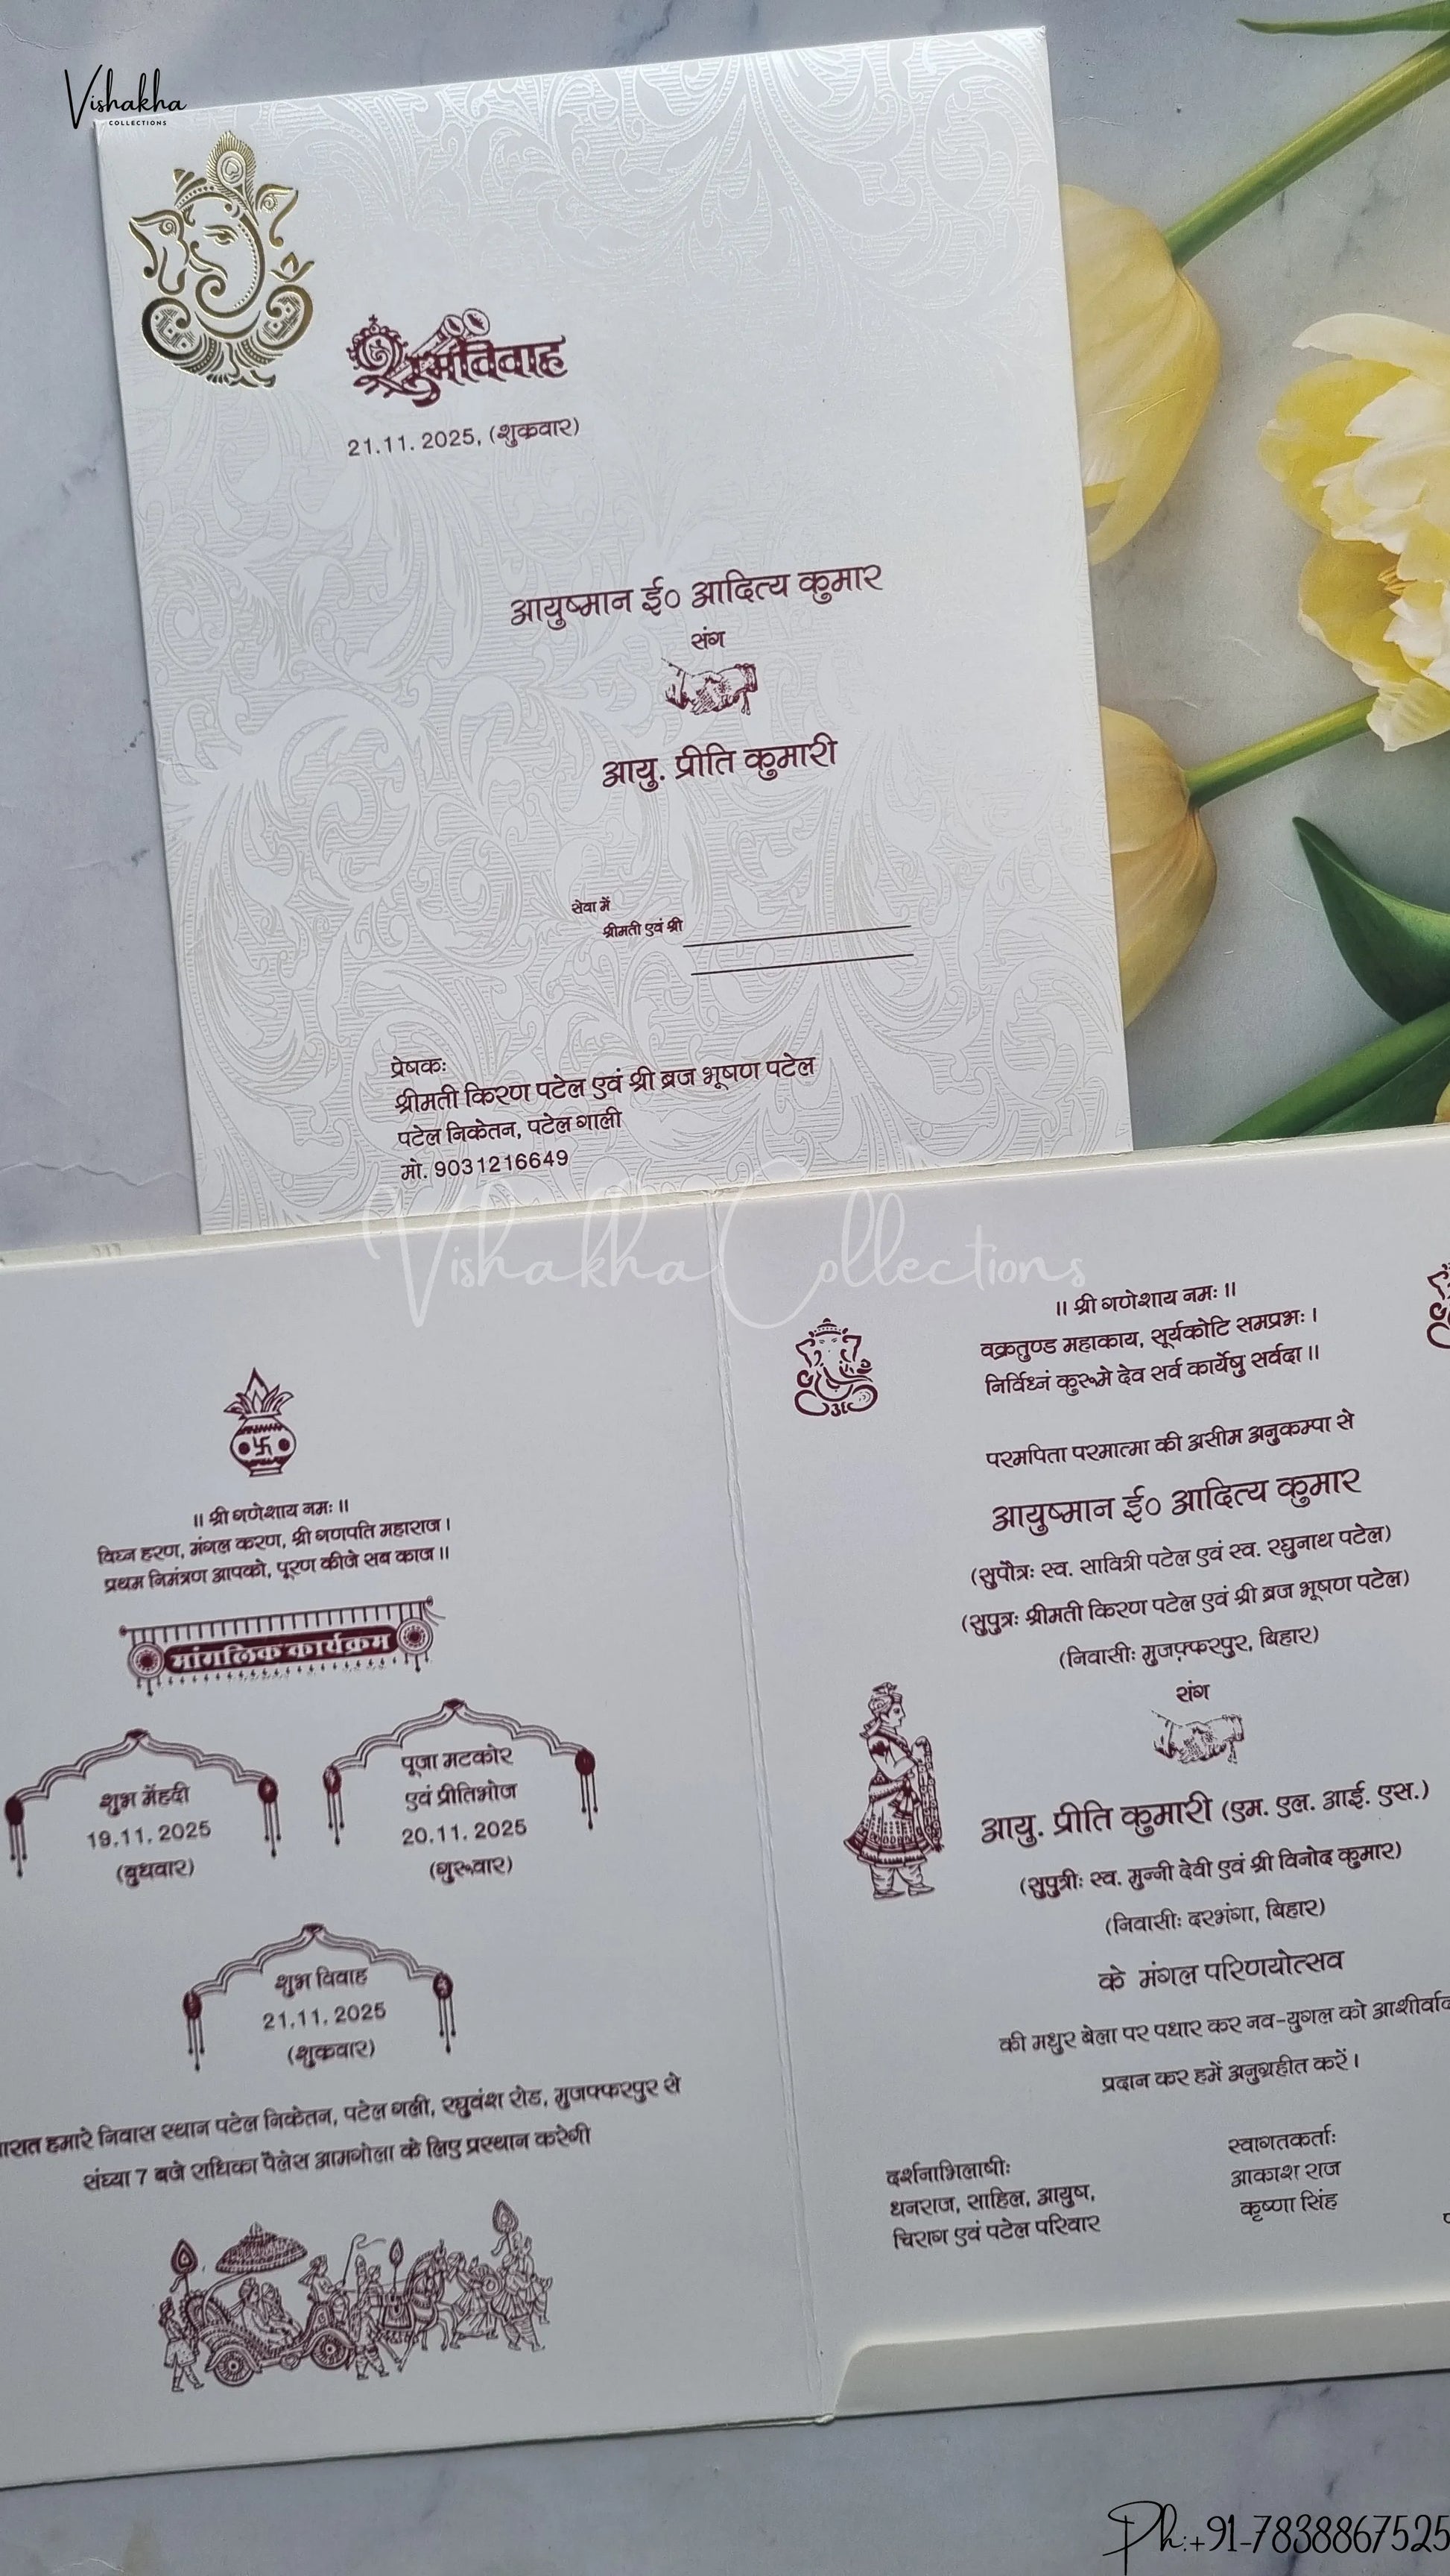 Vishakha
COLLECTIONS
शुभ विवाह
21.11.2025, (शुक्रवार)
आयुष्मान ई० आदित्य कुमार
संग
आयु. प्रीति कुमारी
सेवा में
श्रीमती एवं श्री
प्रेषक:
श्रीमती किरण पटेल एवं श्री ब्रज भूषण पटेल
पटेल निकेतन, पटेल गाली
मो. 9031216649
Vishakha Collections
॥ श्री गणेशाय नमः ॥
विघ्न हरण, मंगल करण, श्री गणपति महाराज।
प्रथम निमंत्रण आपको, पूरण कीजे सब काज॥
मांगलिक कार्यक्रम
शुभ मेंहदी
19.11.2025
(बुधवार)
पूजा मटकोर
एवं प्रीतिभोज
20.11.2025
(गुरूवार)
शुभ विवाह
21.11.2025
(शुक्रवार)
हमारे निवास स्थान पटेल निकेतन, पटेल गली, रघुवंश रोड, मुजफ्फरपुर से
संध्या 7 बजे राधिका पैलेस आमगोला के लिए प्रस्थान करेगी
॥ श्री गणेशाय नमः ॥
वक्रतुण्ड महाकाय, सूर्यकोटि समप्रभः।
निर्विध्नं कुरूमे देव सर्व कार्येषु सर्वदा॥
परमपिता परमात्मा की असीम अनुकम्पा से
आयुष्मान ई० आदित्य कुमार
(सुपौत्रः स्व. सावित्री पटेल एवं स्व. रघुनाथ पटेल)
(सुपुत्रः श्रीमती किरण पटेल एवं श्री ब्रज भूषण पटेल)
(निवासीः मुजफ़्फरपुर, बिहार)
संग
आयु. प्रीति कुमारी (एम. एल. आई. एस.)
(सुपुत्रीः स्व. मुन्नी देवी एवं श्री विनोद कुमार)
(निवासीः दरभंगा, बिहार)
के मंगल परिणयोत्सव
की मधुर बेला पर पधार कर नव-युगल को आशीर्वाद
प्रदान कर हमें अनुग्रहीत करें।
दर्शनाभिलाषीः
धनराज, साहिल, आयुष,
चिराग एवं पटेल परिवार
स्वागतकर्ताः
आकाश राज
कृष्णा सिंह
Ph:+91-7838867525